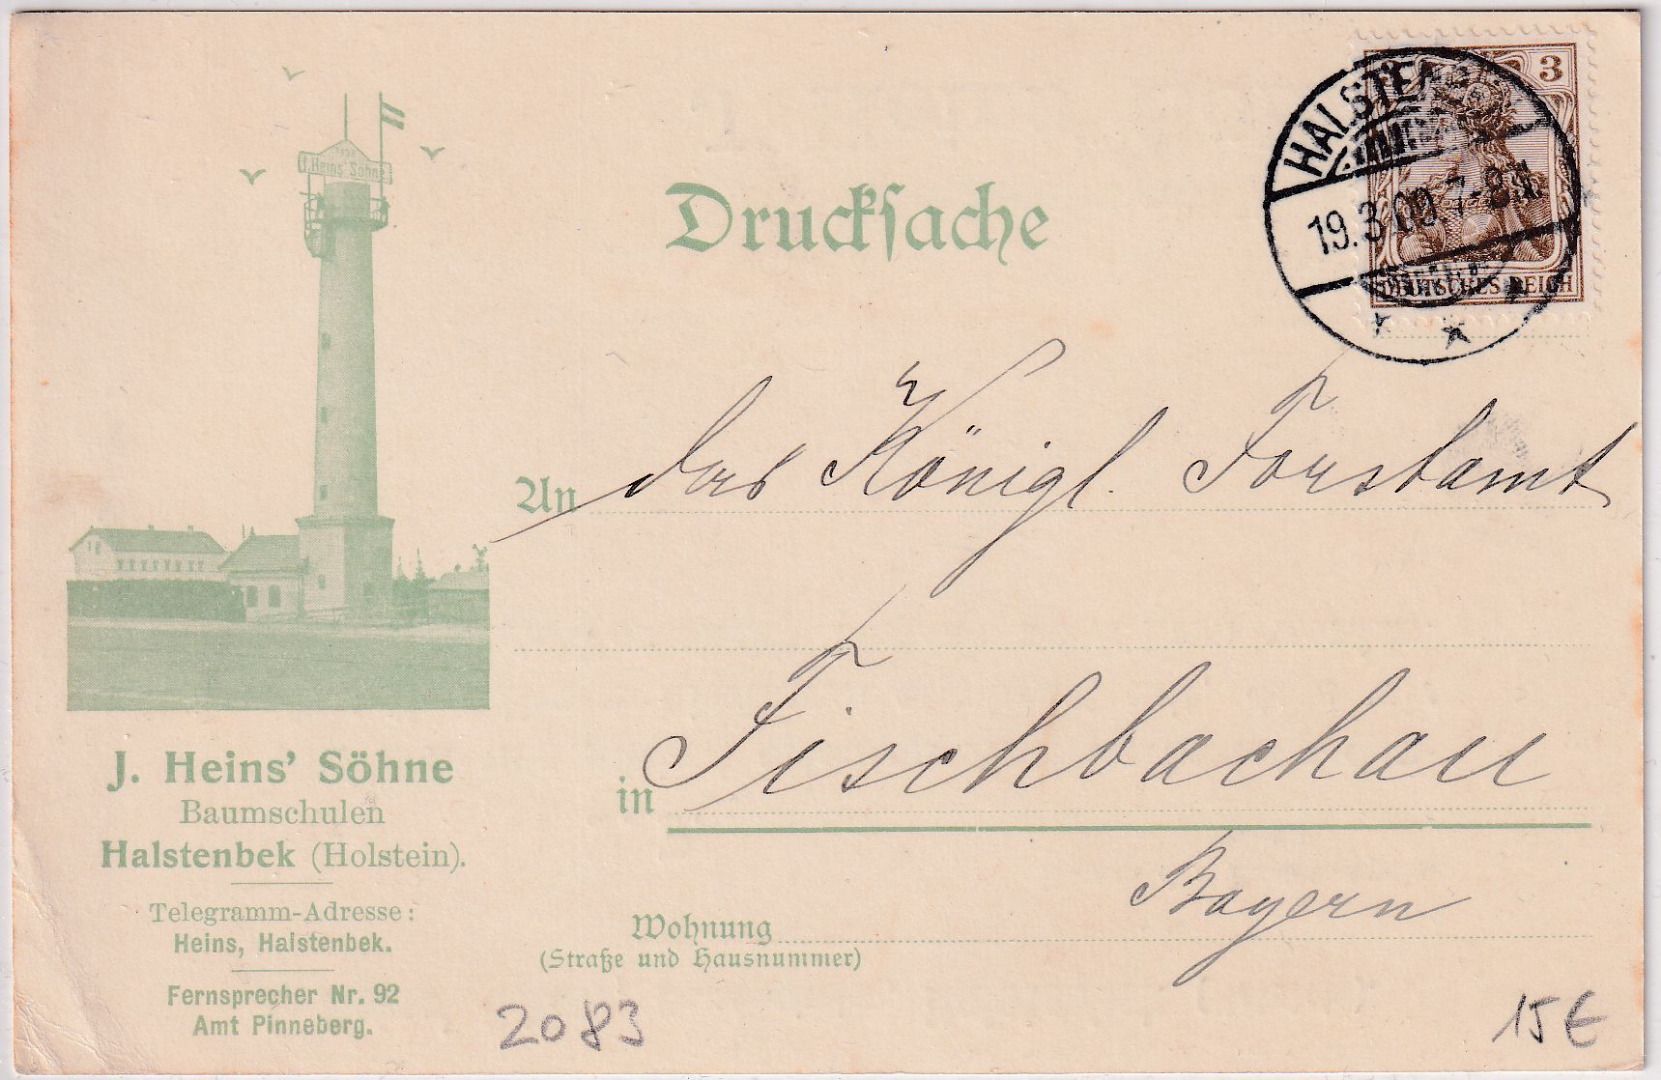 J. Heins' Söhne
Drucksache
3
DEUTSCHES REICH
HALSTENBEK
19.3.09.7-8N.
An das Königl. Forstamt
in Fischbachau
Bayern
Wohnung
(Straße und Hausnummer)
J. Heins' Söhne
Baumschulen
Halstenbek (Holstein).
Telegramm-Adresse:
Heins, Halstenbek.
Fernsprecher Nr. 92
Amt Pinneberg.
2083
15€